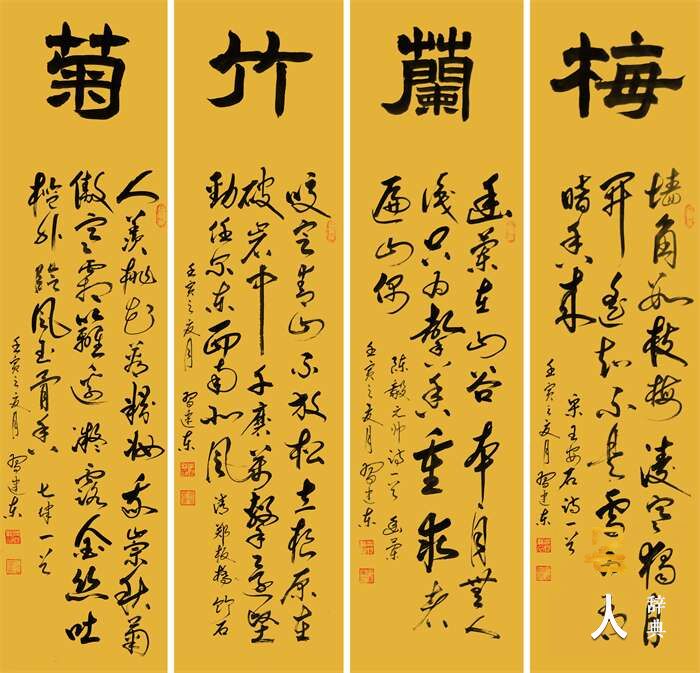 梅
墙角数枝梅凌寒独自
开遥知不是雪为有
暗香来
宋王安石诗一首
壬寅之夏月 習建东
蘭
幽兰在山谷本自无人
识只为馨香重求者
遍山隅
陈毅元帅诗一首 幽兰
壬寅之夏月 習建东
竹
咬定青山不放松立根原在
破岩中千磨万击还坚
劲任尔东西南北风 清郑板桥竹石
壬寅之夏月 習建东
菊
人羡桃花若粉妆我崇秋菊
傲寒霜篱边凝露金丝吐
槛外临风玉骨香 七律一首
壬寅之夏月 習建东
人
辞典